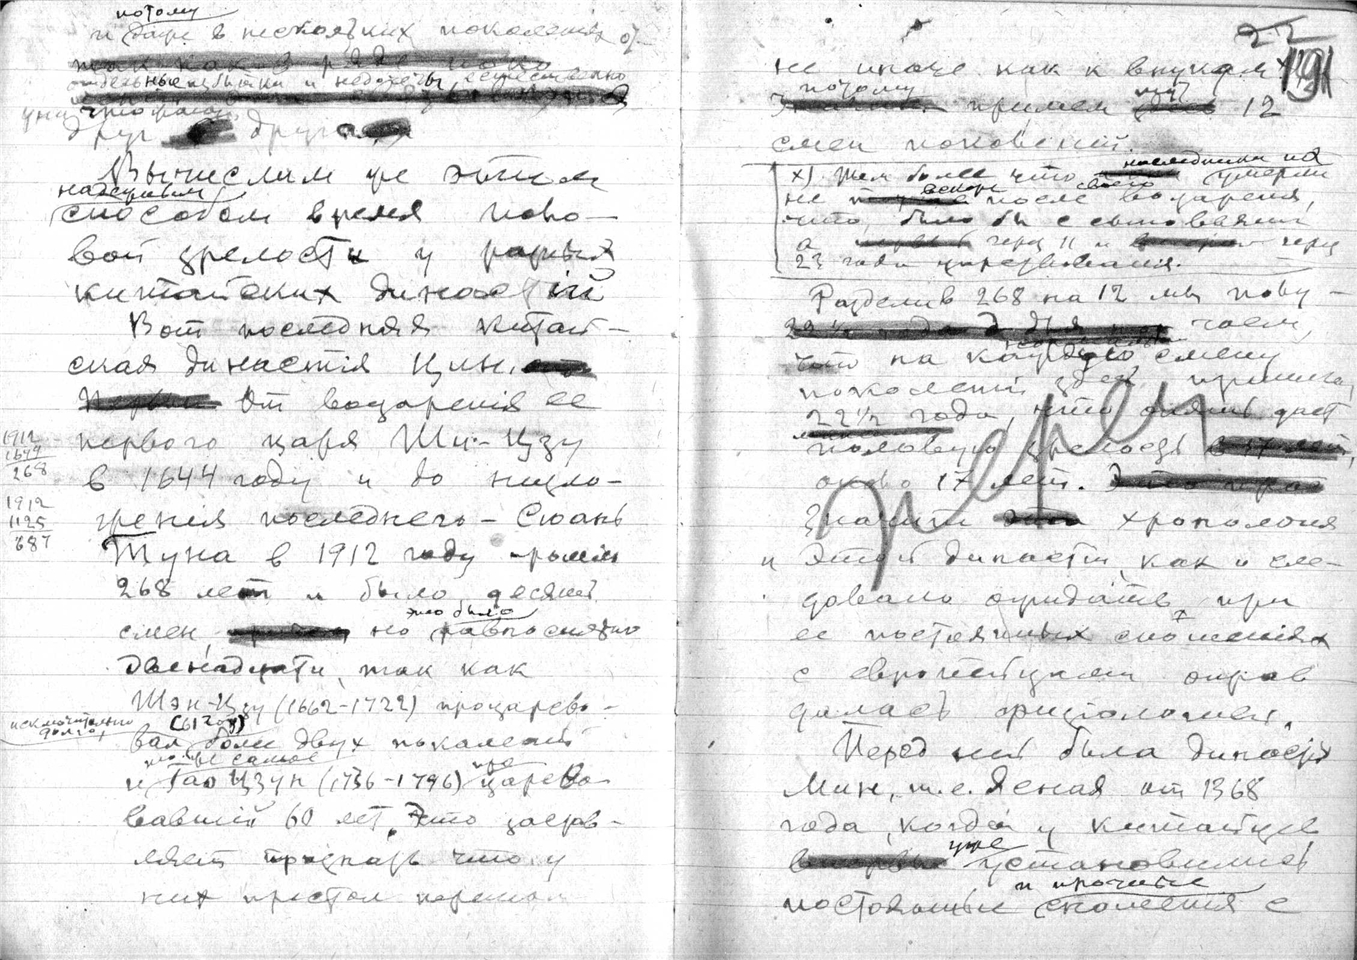 потому
и даже в нескольких поколениях
отдельные избытки и недочёты, естественно
уничтожают
друг друга
Вычислим же этим
надежным
способом время поло-
вой зрелости у разных
китайских династій
Вот последняя Китай-
ская династія Цин.
От воцаренія ее
первого царя Ши-Цзу
в 1644 году и до низло-
женія последнего - Сюань
Туна в 1912 году прошли
268 лет и было десять
это было
смен, но равносильно
двенадцати, так как
Шэн-Цзу (1662-1722) процарево-
исключительно
долго,
(61 год)
вал более двух поколений
то же самое
и Гао Цзун (1736-1796) про
царево-
вавший 60 лет. Это застав-
ляет признать что у
них престол перешол
1912
1644
268
1912
1125
687
22
191
не иначе как к внукам x)
потому
примем тут 12
смен поколений.
x) Тем более что наследники их умерли
не вскоре после своего воцарения,
что было бы с сыновьями
а через 11 и через
23 года царствования.
Разделив 268 на 12 мы полу-
чаем,
нормальную
что на каждую смену
поколений здесь пришлось
22½ года, что опять дает
половую зрелость
около 17 лет.
Значит хронология
и этой династіи, как и сле-
довало ожидать при
ее постоянных сношеніях
с европейцами оправ
далась физиологией.
Перед ней была династія
Мин, т.е. Ясная от 1368
года, когда у китайцев
уже
установились
и прочные
постоянные сношения с